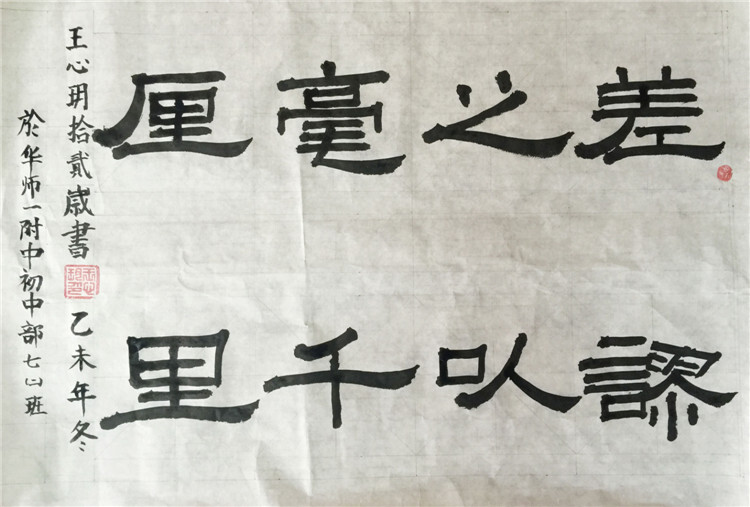 差之毫厘
謬以千里
王心玥拾貳歲書 乙未年冬
於华师一附中初中部七班